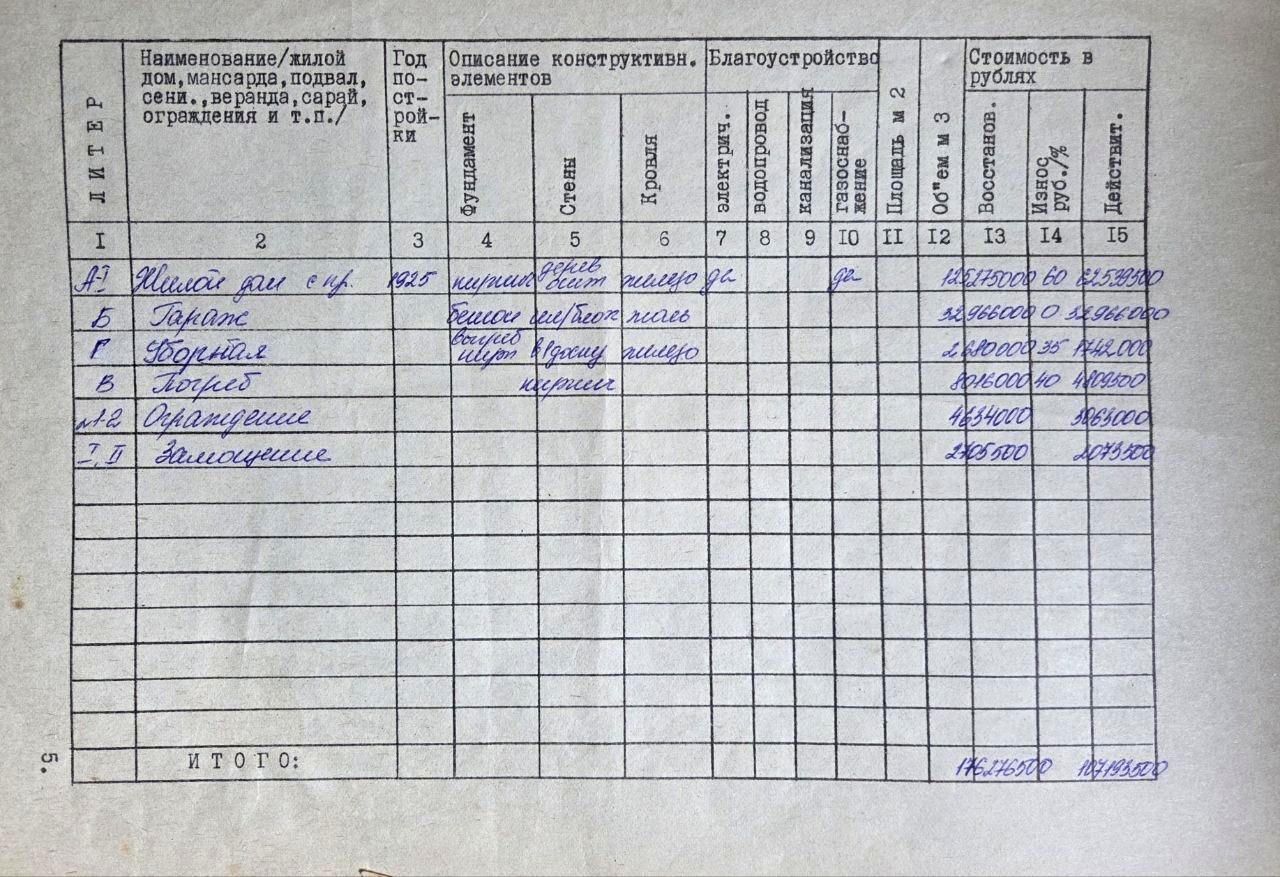 ЛИТЕР
Наименование/жилой
дом,мансарда,подвал,
сени.,веранда,сарай,
ограждения и т.п./
Год
по-
ст-
рой-
ки
Описание конструктивн.
элементов
Фундамент
Стены
Кровля
Благоустройство
электрич.
водопровод
канализация
газоснаб-
жение
Площадь м 2
Об"ем м 3
Стоимость в
рублях
Восстанов.
Износ
руб./%
Действит.
I 2 3 4 5 6 7 8 9 I0 II I2 I3 I4 I5
А-I Жилой дом с пр. 1925 кирпич дерев железо да да 125275000 60 62539500
Б Гараж бетон шл/блок толь 32966000 0 32966000
Г Уборная выгреб кирп в 1 доску железо 2680000 35 1742000
В Погреб кирпич 8016000 40 4809500
1-2 Ограждение 4634000 3063000
I, II Замощение 2705500 2073500
ИТОГО: 176276500 107193500
5.